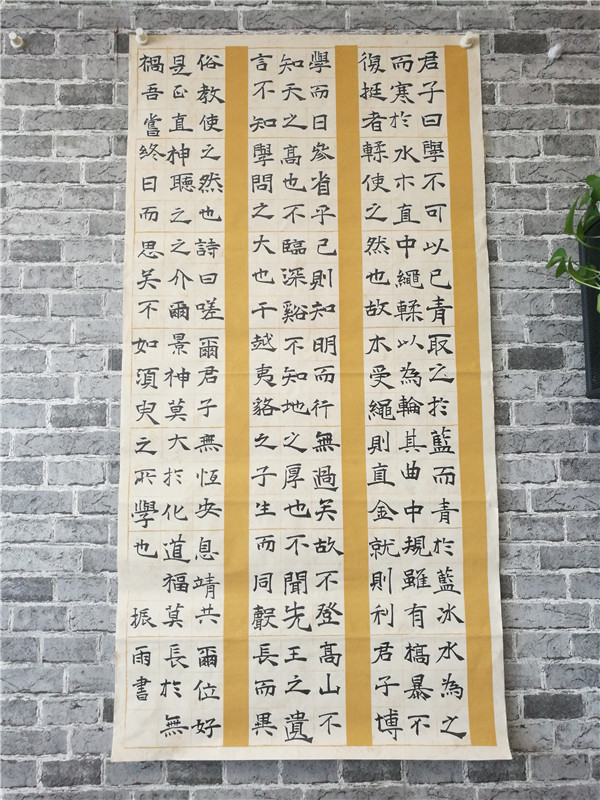 君子曰學不可以已青取之於藍而青於藍冰水為之
而寒於水木直中繩輮以為輪其曲中規雖有槁暴不
復挺者輮使之然也故木受繩則直金就則利君子博
學而日參省乎己則知明而行無過矣故不登高山不
知天之高也不臨深谿不知地之厚也不聞先王之遺
言不知學問之大也干越夷貉之子生而同聲長而異
俗教使之然也詩曰嗟爾君子無恆安息靖共爾位好
是正直神聽之之介爾景神莫大於化道福莫長於無
禍吾嘗終日而思矣不如須臾之所學也 振雨書